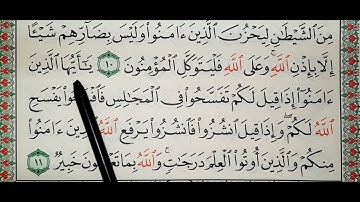 مِنَ الشَّيْطَٰنِ لِيَحْزُنَ الَّذِينَ ءَامَنُوا وَلَيْسَ بِضَارِّهِمْ شَيْـًٔا
إِلَّا بِإِذْنِ اللَّهِ وَعَلَى اللَّهِ فَلْيَتَوَكَّلِ الْمُؤْمِنُونَ ١٠ يَٰٓأَيُّهَا الَّذِينَ
ءَامَنُوٓا إِذَا قِيلَ لَكُمْ تَفَسَّحُوا فِى الْمَجَٰلِسِ يَفْسَحِ
اللَّهُ لَكُمْ وَإِذَا قِيلَ انشُزُوا فَانشُزُوا يَرْفَعِ اللَّهُ ءَامَنُوا
مِنكُمْ وَالَّذِينَ أُوتُوا الْعِلْمَ دَرَجَٰتٍ وَاللَّهُ خَبِيرٌ ١١